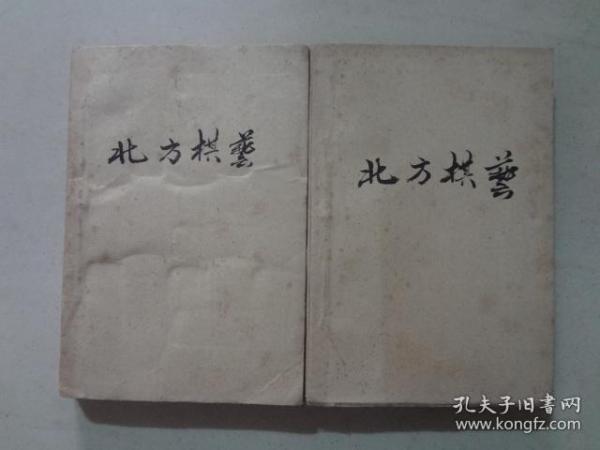 北方棋藝
北方棋藝
孔夫子旧书网
www.kongfz.com